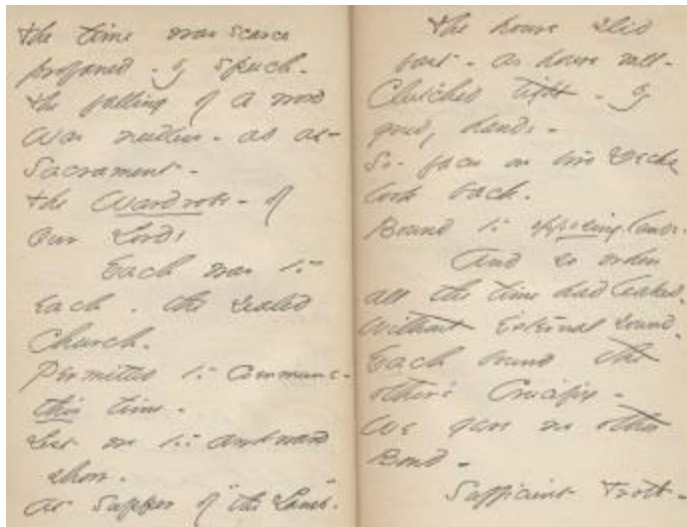 The time was scarce
profaned - by speech -
The falling of a word
Was needless - as at
Sacrament -
The Wardrobe - of
Our Lord!
Each was to
Each - the sealed
Church -
Permitted to commune -
this time -
Lest we too awkward
show -
At Supper of "the Lamb."
The hours slid
fast - as hours will -
Clutched tight - by
greedy hands -
So - faces on two Decks
look back -
Bound to opposing lands -
And so when
all the time had leaked,
Without external sound,
Each bound the
other's Crucifix -
We gave no other
Bond -
Sufficient troth -